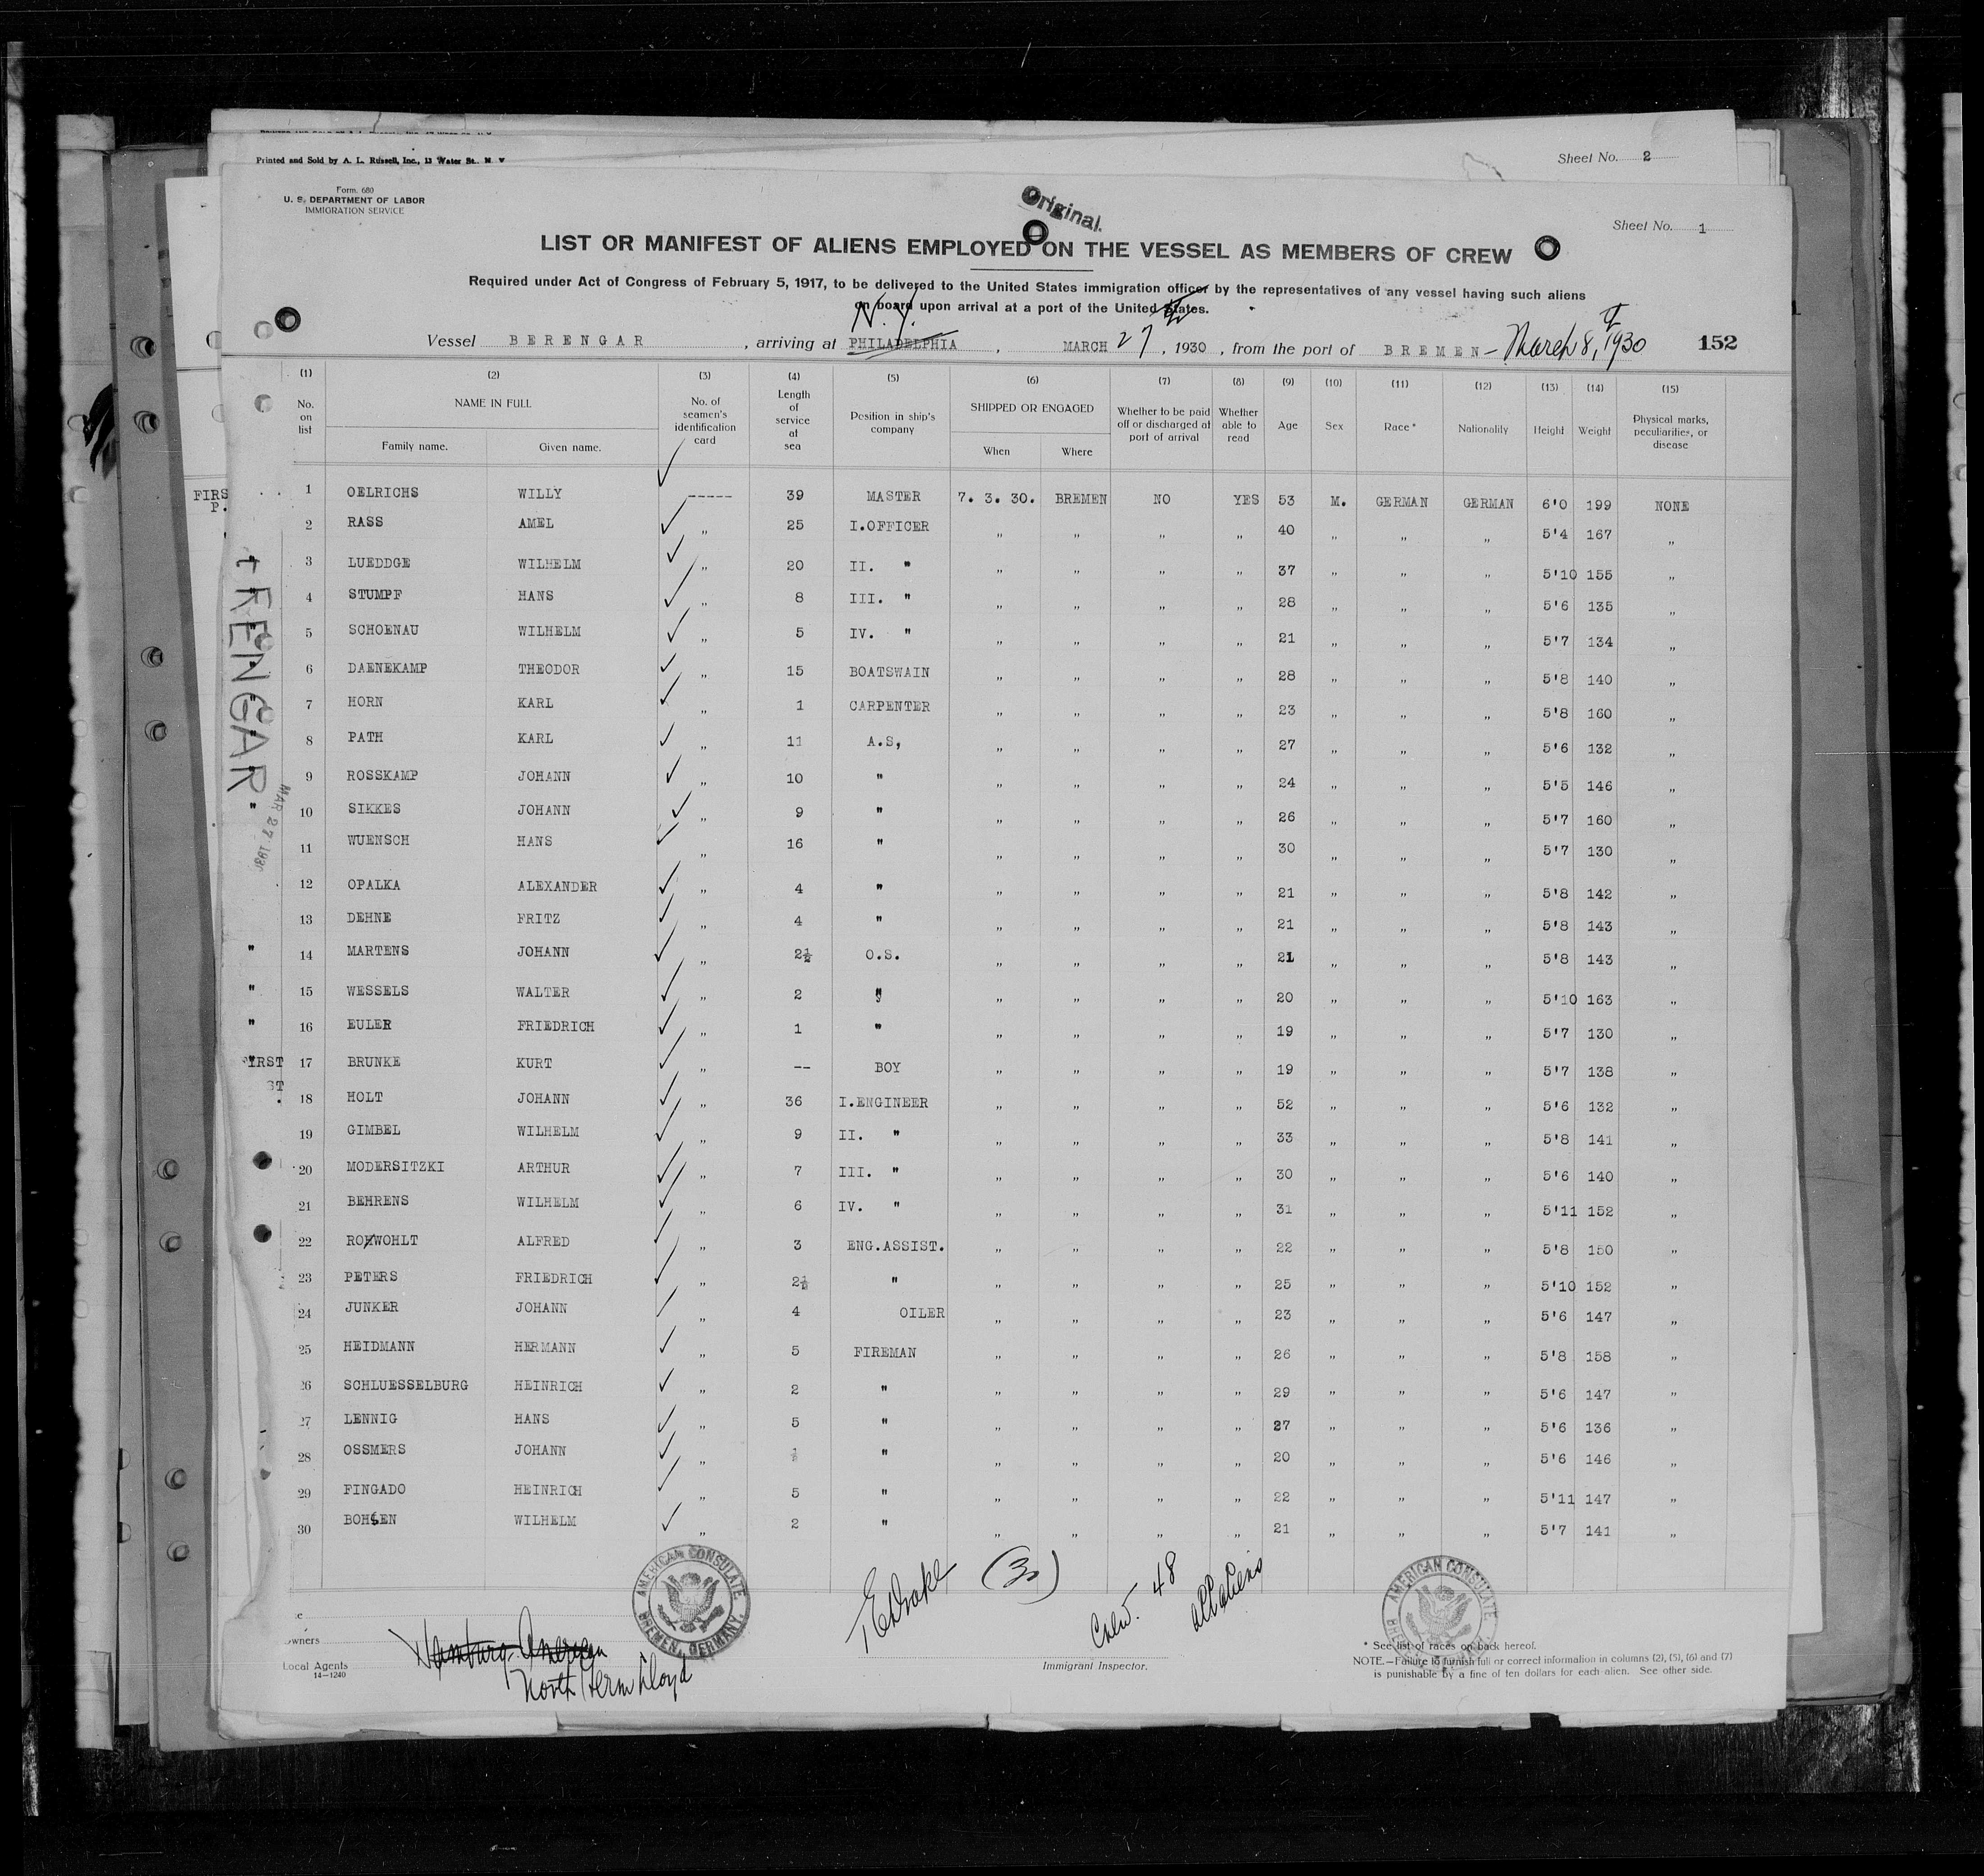 Printed and Sold by A. L. Russell, Inc., 13 Water St. N Y
Sheet No. 2
Form. 680
U. S. DEPARTMENT OF LABOR
IMMIGRATION SERVICE
Original.
Sheet No. 1
LIST OR MANIFEST OF ALIENS EMPLOYED ON THE VESSEL AS MEMBERS OF CREW
Required under Act of Congress of February 5, 1917, to be delivered to the United States immigration officer by the representatives of any vessel having such aliens
on board upon arrival at a port of the United States.
N.Y.
Vessel BERENGAR, arriving at PHILADELPHIA, MARCH 27th, 1930, from the port of BREMEN - March 8, 1930 152
(1) (2) (3) (4) (5) (6) (7) (8) (9) (10) (11) (12) (13) (14) (15)
No. on list NAME IN FULL Family name. Given name. No. of seamen's identification card Length of service at sea Position in ship's company SHIPPED OR ENGAGED When Where Whether to be paid off or discharged at port of arrival Whether able to read Age Sex Race * Nationality Height Weight Physical marks, peculiarities, or disease
1 OELRICHS WILLY ----- 39 MASTER 7. 3. 30. BREMEN NO YES 53 M. GERMAN GERMAN 6'0 199 NONE
2 RASS AMEL " 25 I.OFFICER " " " " 40 " " " 5'4 167 "
3 LUEDDGE WILHELM " 20 II. " " " " " 37 " " " 5'10 155 "
4 STUMPF HANS " 8 III. " " " " " 28 " " " 5'6 135 "
5 SCHOENAU WILHELM " 5 IV. " " " " " 21 " " " 5'7 134 "
6 DAENEKAMP THEODOR " 15 BOATSWAIN " " " " 28 " " " 5'8 140 "
7 HORN KARL " 1 CARPENTER " " " " 23 " " " 5'8 160 "
8 PATH KARL " 11 A.S, " " " " 27 " " " 5'6 132 "
9 ROSSKAMP JOHANN " 10 " " " " " 24 " " " 5'5 146 "
10 SIKKES JOHANN " 9 " " " " " 26 " " " 5'7 160 "
11 WUENSCH HANS " 16 " " " " " 30 " " " 5'7 130 "
12 OPALKA ALEXANDER " 4 " " " " " 21 " " " 5'8 142 "
13 DEHNE FRITZ " 4 " " " " " 21 " " " 5'8 143 "
14 MARTENS JOHANN " 2½ O.S. " " " " 21 " " " 5'8 143 "
15 WESSELS WALTER " 2 " " " " " 20 " " " 5'10 163 "
16 EULER FRIEDRICH " 1 " " " " " 19 " " " 5'7 130 "
17 BRUNKE KURT " -- BOY " " " " 19 " " " 5'7 138 "
18 HOLT JOHANN " 36 I.ENGINEER " " " " 52 " " " 5'6 132 "
19 GIMBEL WILHELM " 9 II. " " " " " 33 " " " 5'8 141 "
20 MODERSITZKI ARTHUR " 7 III. " " " " " 30 " " " 5'6 140 "
21 BEHRENS WILHELM " 6 IV. " " " " " 31 " " " 5'11 152 "
22 ROHWOHLT ALFRED " 3 ENG.ASSIST. " " " " 22 " " " 5'8 150 "
23 PETERS FRIEDRICH " 2½ " " " " " 25 " " " 5'10 152 "
24 JUNKER JOHANN " 4 OILER " " " " 23 " " " 5'6 147 "
25 HEIDMANN HERMANN " 5 FIREMAN " " " " 26 " " " 5'8 158 "
26 SCHLUESSELBURG HEINRICH " 2 " " " " " 29 " " " 5'6 147 "
27 LENNIG HANS " 5 " " " " " 27 " " " 5'6 136 "
28 OSSMERS JOHANN " ½ " " " " " 20 " " " 5'6 146 "
29 FINGADO HEINRICH " 5 " " " " " 22 " " " 5'11 147 "
30 BOHLEN WILHELM " 2 " " " " " 21 " " " 5'7 141 "
RENGAR
MAR 27 1930
FIRS
P.
AMERICAN CONSULATE
BREMEN, GERMANY.
(30)
Crew. 48
all aliens
AMERICAN CONSULATE
Owners
Local Agents
14-1240
Hamburg American
North Germ Lloyd
Immigrant Inspector.
* See list of races on back hereof.
NOTE.—Failure to furnish full or correct information in columns (2), (5), (6) and (7)
is punishable by a fine of ten dollars for each alien. See other side.